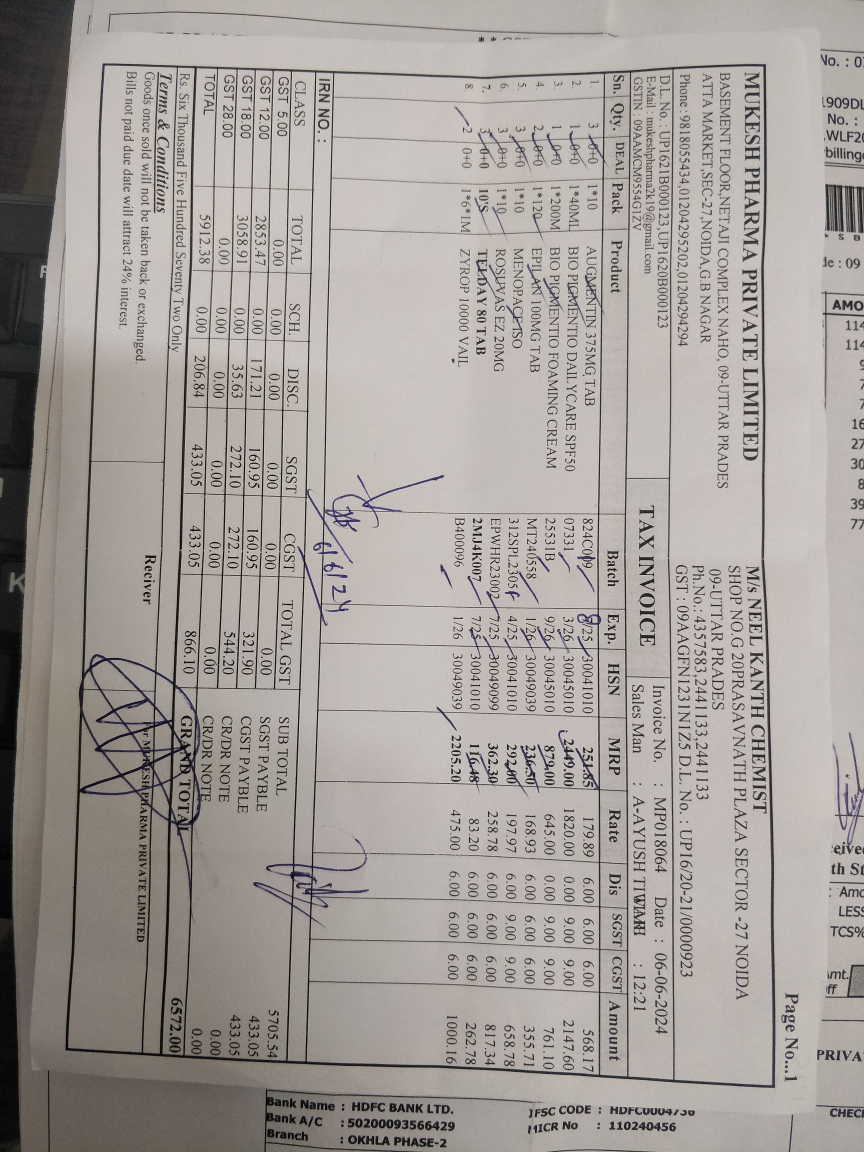 Page No...1
MUKESH PHARMA PRIVATE LIMITED
BASEMENT FLOOR,NETAJI COMPLEX NAHO, 09-UTTAR PRADES
ATTA MARKET,SEC-27,NOIDA,G.B NAGAR
Phone :9818055434,01204295202,01204294294
D.L. No. : UP1621B000123,UP1620B000123
E-Mail : mukeshpharma2k19@gmail.com
GSTIN : 09AAMCM9554G1ZV
M/s NEEL KANTH CHEMIST
SHOP NO.G 20PRASAVNATH PLAZA SECTOR -27 NOIDA
09-UTTAR PRADES
Ph.No.: 4357583,2441133,2441133
GST : 09AAGFN1231N1Z5 D.L. No. : UP16/20-21/0000923
TAX INVOICE
Invoice No. : MP018064 Date : 06-06-2024
Sales Man : A-AYUSH : 12:21
Sn. Qty. DEAL Pack Product Batch Exp. HSN MRP Rate Dis SGST CGST Amount
1. 3 0+0 1*10 AUGMENTIN 375MG TAB 824C009 8/25 30041010 251.85 179.89 6.00 6.00 6.00 568.17
2. 1 0+0 1*40ML BIO PIGMENTIO DAILYCARE SPF50 07331 3/26 30045010 2449.00 1820.00 0.00 9.00 9.00 2147.60
3. 1 0+0 1*200M BIO PIGMENTIO FOAMING CREAM 25531B 9/26 30045010 879.00 645.00 0.00 9.00 9.00 761.10
4. 2 0+0 1*120 EPILAN 100MG TAB MT240558 1/26 30049039 236.50 168.93 6.00 6.00 6.00 355.71
5. 3 0+0 1*10 MENOPACE ISO 312SPL2305 4/25 30041010 292.00 197.97 6.00 9.00 9.00 658.78
6. 3 0+0 1*10 ROSUVAS EZ 20MG EPWHR23002 7/25 30049099 362.30 258.78 6.00 6.00 6.00 817.34
7. 3 0+0 10'S TELDAY 80 TAB 2MJ4K007 7/25 30041010 116.48 83.20 6.00 6.00 6.00 262.78
8. 2 0+0 1*6*1M ZYROP 10000 VAIL B400096 1/26 30049039 2205.20 475.00 6.00 6.00 6.00 1000.16
6/6/24
IRN NO. :
CLASS TOTAL SCH. DISC. SGST CGST TOTAL GST
GST 5.00 0.00 0.00 0.00 0.00 0.00 0.00
GST 12.00 2853.47 0.00 171.21 160.95 160.95 321.90
GST 18.00 3058.91 0.00 35.63 272.10 272.10 544.20
GST 28.00 0.00 0.00 0.00 0.00 0.00 0.00
TOTAL 5912.38 0.00 206.84 433.05 433.05 866.10
SUB TOTAL 5705.54
SGST PAYBLE 433.05
CGST PAYBLE 433.05
CR/DR NOTE 0.00
CR/DR NOTE 0.00
GRAND TOTAL 6572.00
Rs. Six Thousand Five Hundred Seventy Two Only
Terms & Conditions
Goods once sold will not be taken back or exchanged.
Bills not paid due date will attract 24% interest.
Reciver
For MUKESH PHARMA PRIVATE LIMITED
Bank Name : HDFC BANK LTD.
Bank A/C : 50200093566429
Branch : OKHLA PHASE-2
IFSC CODE :
MICR No : 110240456